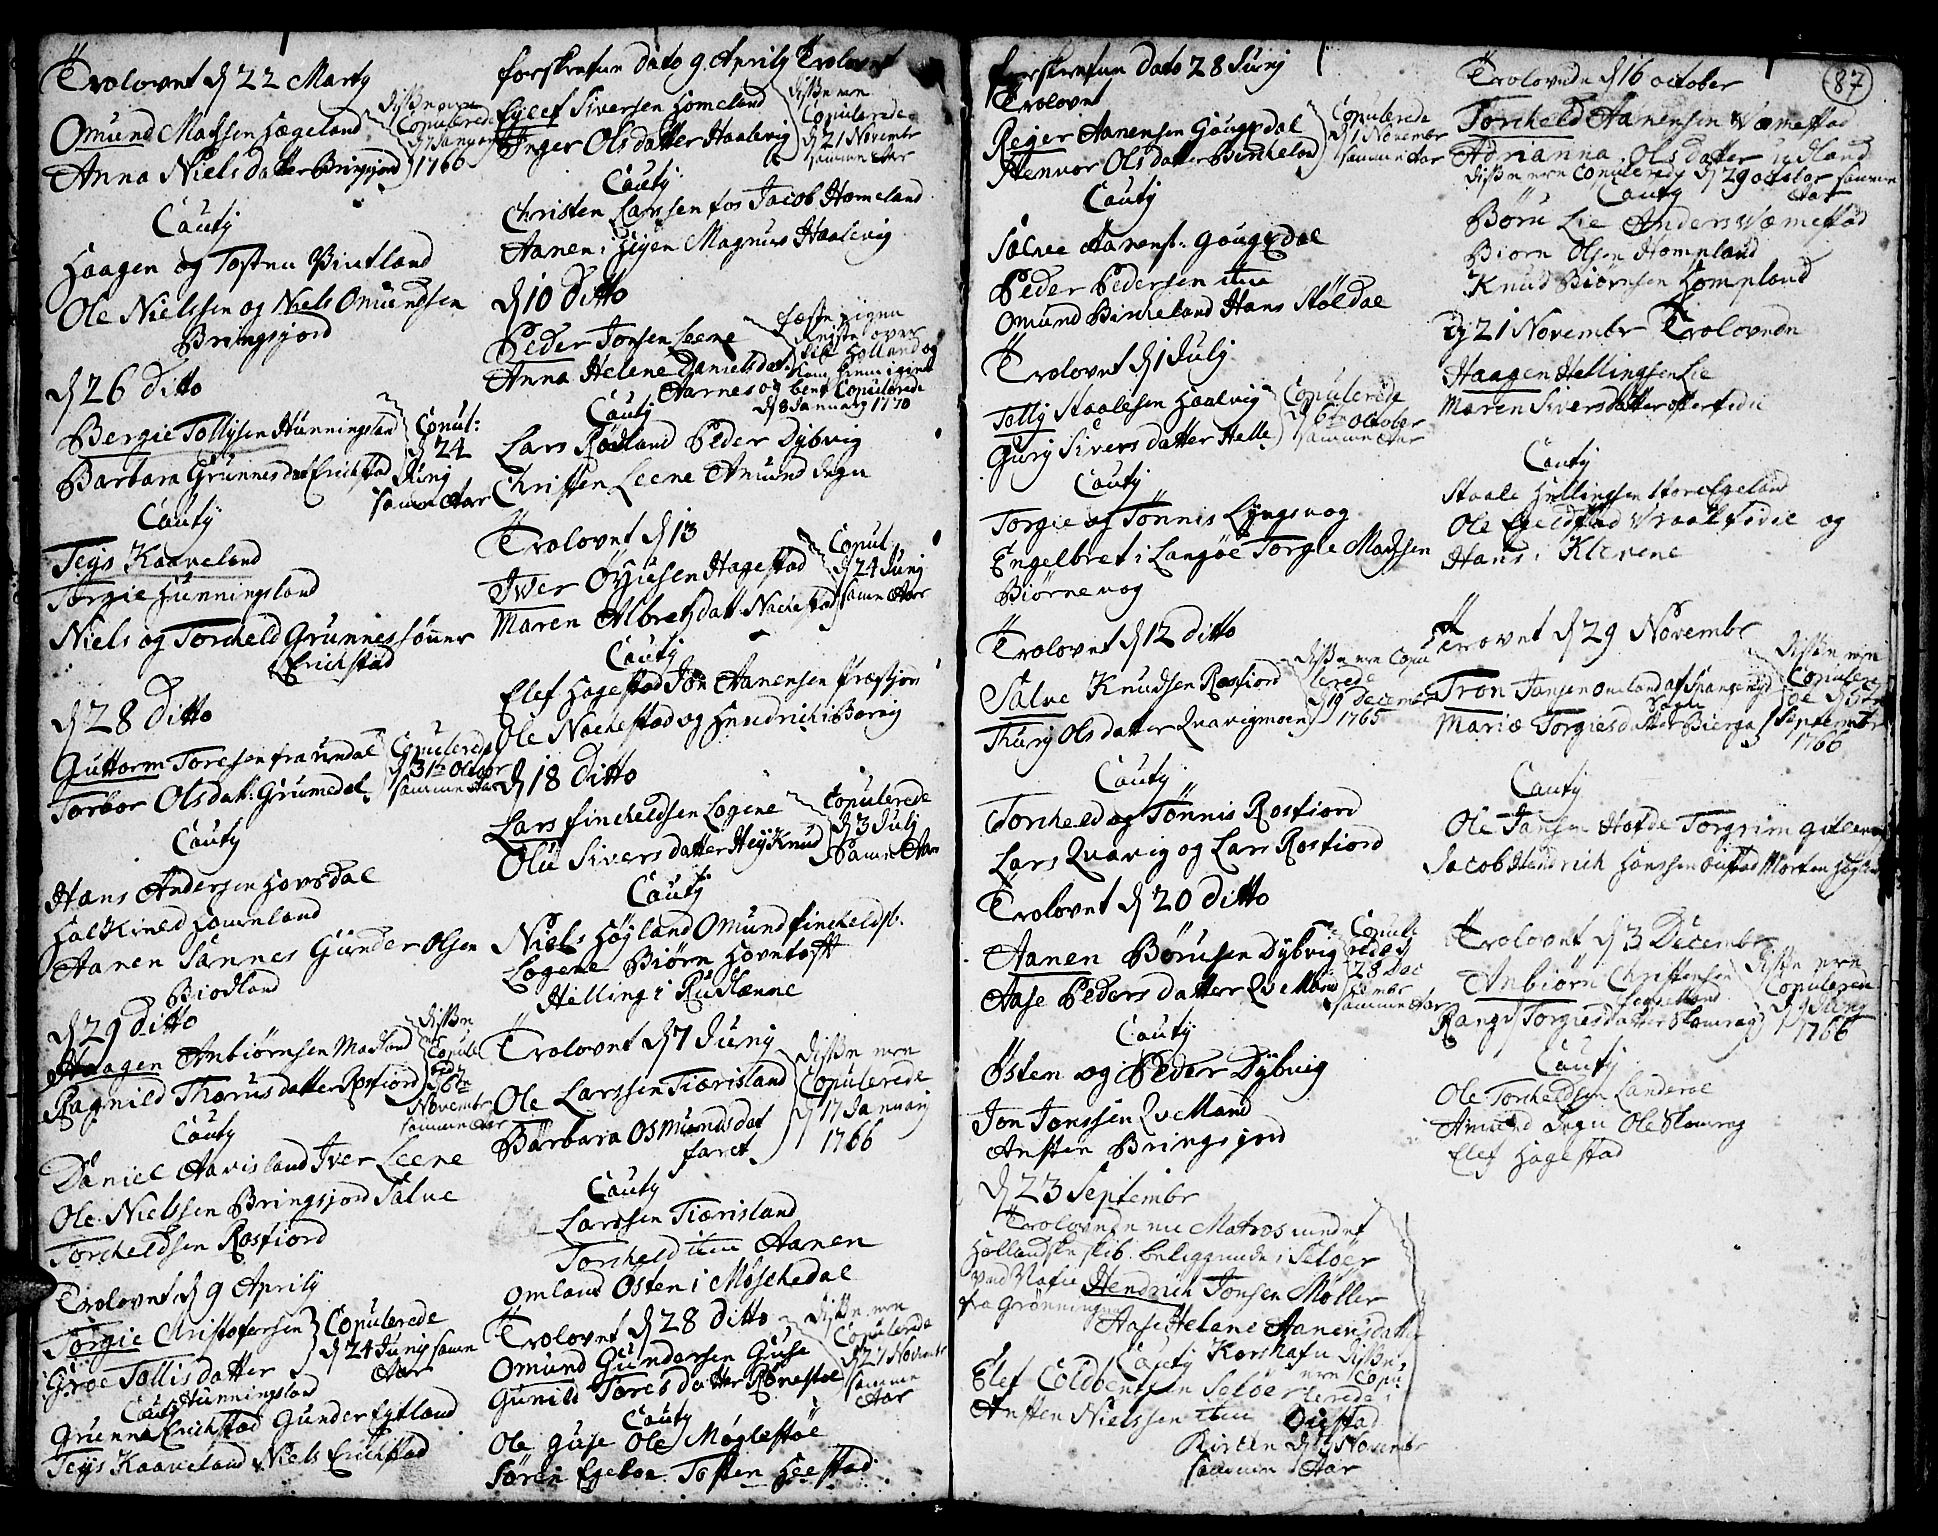 Trolovet d 22 Martij
Omund Madsen Hægeland
Anna Niels datter Bringsjord
Disse ere
Copulerede
d 7 Januarij
1766
Cautij
Haagen og Tosten Vintland
Ole Nielssen og Niels Omundsen
Bringsjord
d 26 Ditto
Bergie Tollisen Hunningsland
Barbara Grunnesdat Erichstad
Copul:
d 24
Junij
samme Aar
Cautij
Teijs Kaaveland
Torgie Hunningsland
Niels og Torcheld Grunnes sønner
Erichstad
d 28 Ditto
Guttorm Toresen fra undal
Torbor Olsdat: Grumedal
Copulerede
d 31te Octobr
samme Aar
Cautij
Hans Andersen Hovsdal
Halkield Homland
Aanen Sannes Gunder Olsen
Biodland
d 29 Ditto
Haagen Anbiørnsen Madland
Ragnild Thorus datter Rosfiord
Disse
Copule
rede
d 6te
Novembr
samme Aar
Cautij
Daniel Aavisland Iver Leene
Ole Nielssen Bringsjord Salve
Torcheldsen Rosfiord
Trolovet d 9 Aprilij
Torgie Christofersen
Groe Tollisdatter
Hunningsland
Copulerede
d 24 Junij samme
Aar
Cautij
Grunna Erichstad Gunder Egeland
Teijs Kaaveland Niels Erichstad
forskrefne Dato 9 Aprilij Trolovet
Eylef Siversen Homeland
Inger Olsdatter Haalevig
Disse ere
Copulerede
d 21 Novembr
samme Aar
Cautij
Christen Larssen for Jacob Homeland
Aanen i Heyen Magnus Haalevig
d 10 Ditto
Peder Jonsen Leene
Anna Helene Danielsdat
Aarnes
Fæste pigen
Reyste over
til Holland og
kom hiem igien
og blev Copulerede
d 8 Januarij 1770
Cautij
Lars Rødland Peder Dybvig
Christen Leene Amund Degn
Trolovet d 13
Iver Øyusen Hagestad
Maren Albretsdatt Nachestad
Copul
d 24 Junij
samme Aar
Cautij
Elef Hagestad Jon Aanensen fræstjord
Ole Nachestad og Hendrich i Barvig
d 18 Ditto
Lars fincheldsen Logene
Olu Sivers datter Heyknud
Copulerede
d 3 Julij
samme Aar
Cautij
Niels Høyland Omund fincheldss:
Logene Biørn Hovntofft
Helling i Rudlænne
Trolovet d 7 Junij
Ole Larssen Tiørisland
Barbara Osmundsdat
faret
Disse ere
Copulerede
d 17 Januarij
1766
Cautij
Larssen Tiørisland
Torcheld item Aanen
Omland Østen i Møschedal
Trolovet d 28 Ditto
Omund Gundersen Guse
Gunild Tores datter Rønestøl
Disse ere
Copulerede
d 27 Novembr
samme
Aar
Cautij
Ole Guse Ole Møglestøe
Søren Egeboe Tosten Heestad
87
forskrefne Dato 28 Junij
Trolovet
Rejer Aanensen Gougsdal
Stenvor Olsdatter Bircheland
Copulerede
d 1 Novembr
samme Aar
Cautij
Salve Aanens: Gougsdal
Peder Pedersen item
Omund Bircheland Hans Støldal
Trolovet d 1 Julij
Tollij Staalesen Haalvig
Gurij Sivers datter Helle
Copulerede
d 6te October
samme Aar
Cautij
Torgie og Tønnis Lyngsvog
Engelbret i Langøe Torgie Madssen
Biørnevog
Trolovet d 12 Ditto
Salve Knudsen Rosfiord
Thurij Olsdatter Qvavigmoen
Disse ere Copu
lerede
d 19 Decembr
1765
Cautij
Torcheld og Tønnis Rosfiord
Lars Qvavig og Lars Rosfiord
Trolovet d 20 Ditto
Aanen Børusen Dybvig
Aase Peders datter Qvelland
Copule
rede d
28 Dec
embr
samme Aar
Cautij
Østen og Peder Dybvig
Jon Jonssen Qvelland
Ansten Bringsjord
d 23 Septembr
Trolovede en Matros med et
Hollandske skib beliggende i Seløer
ved Nafn Hendrich Jonsen Møller
fra Grønningen
Aase Helene Aanensdatter
Korshafn
Cautij
Elef Coldbentsen Seløer
Ansten Nielssen item
Disse
ere Copu
lerede i
Oustad
Kirken d 5 Novembr
samme Aar
Trolovede d 16 October
Torcheld Aanensen Væmestad
Adrianna Olsdatter Udland
Disse ere Copulerede d 29 October samme
Aar
Cautij
Børu Lie Anders Væmestad
Biørn Olsen Hompland
Knud Biørnsen Hompland
d 21 Novembr Trolovede
Haagen Hellingsen Lie
Maren Siversdatter
Cautij
Staale Hellingsen Store Egeland
Ole Egeldstad Vraal fidie og
Hans i Klevene
Trovet d 29 Novembr
Tron Jansen Omeland af Spangereyd
Mariæ Torgiesdatter Bierga
Disse ere
Copulere
de d 5te
Septembr
1766
Cautij
Ole Jansen Hofde Torgrim
Jacob Hendrich Hanssen Oustad Morten Høyland
Trolovet d 3 December
Anbiørn Christensen
Rangj Torgiesdatter Skomrag
Disse ere
Copulered
d 9 Junij
1766
Cautij
Ole Torcheldsen Landeroe
Amund Degn Ole Skomrag
Elef Hagestad